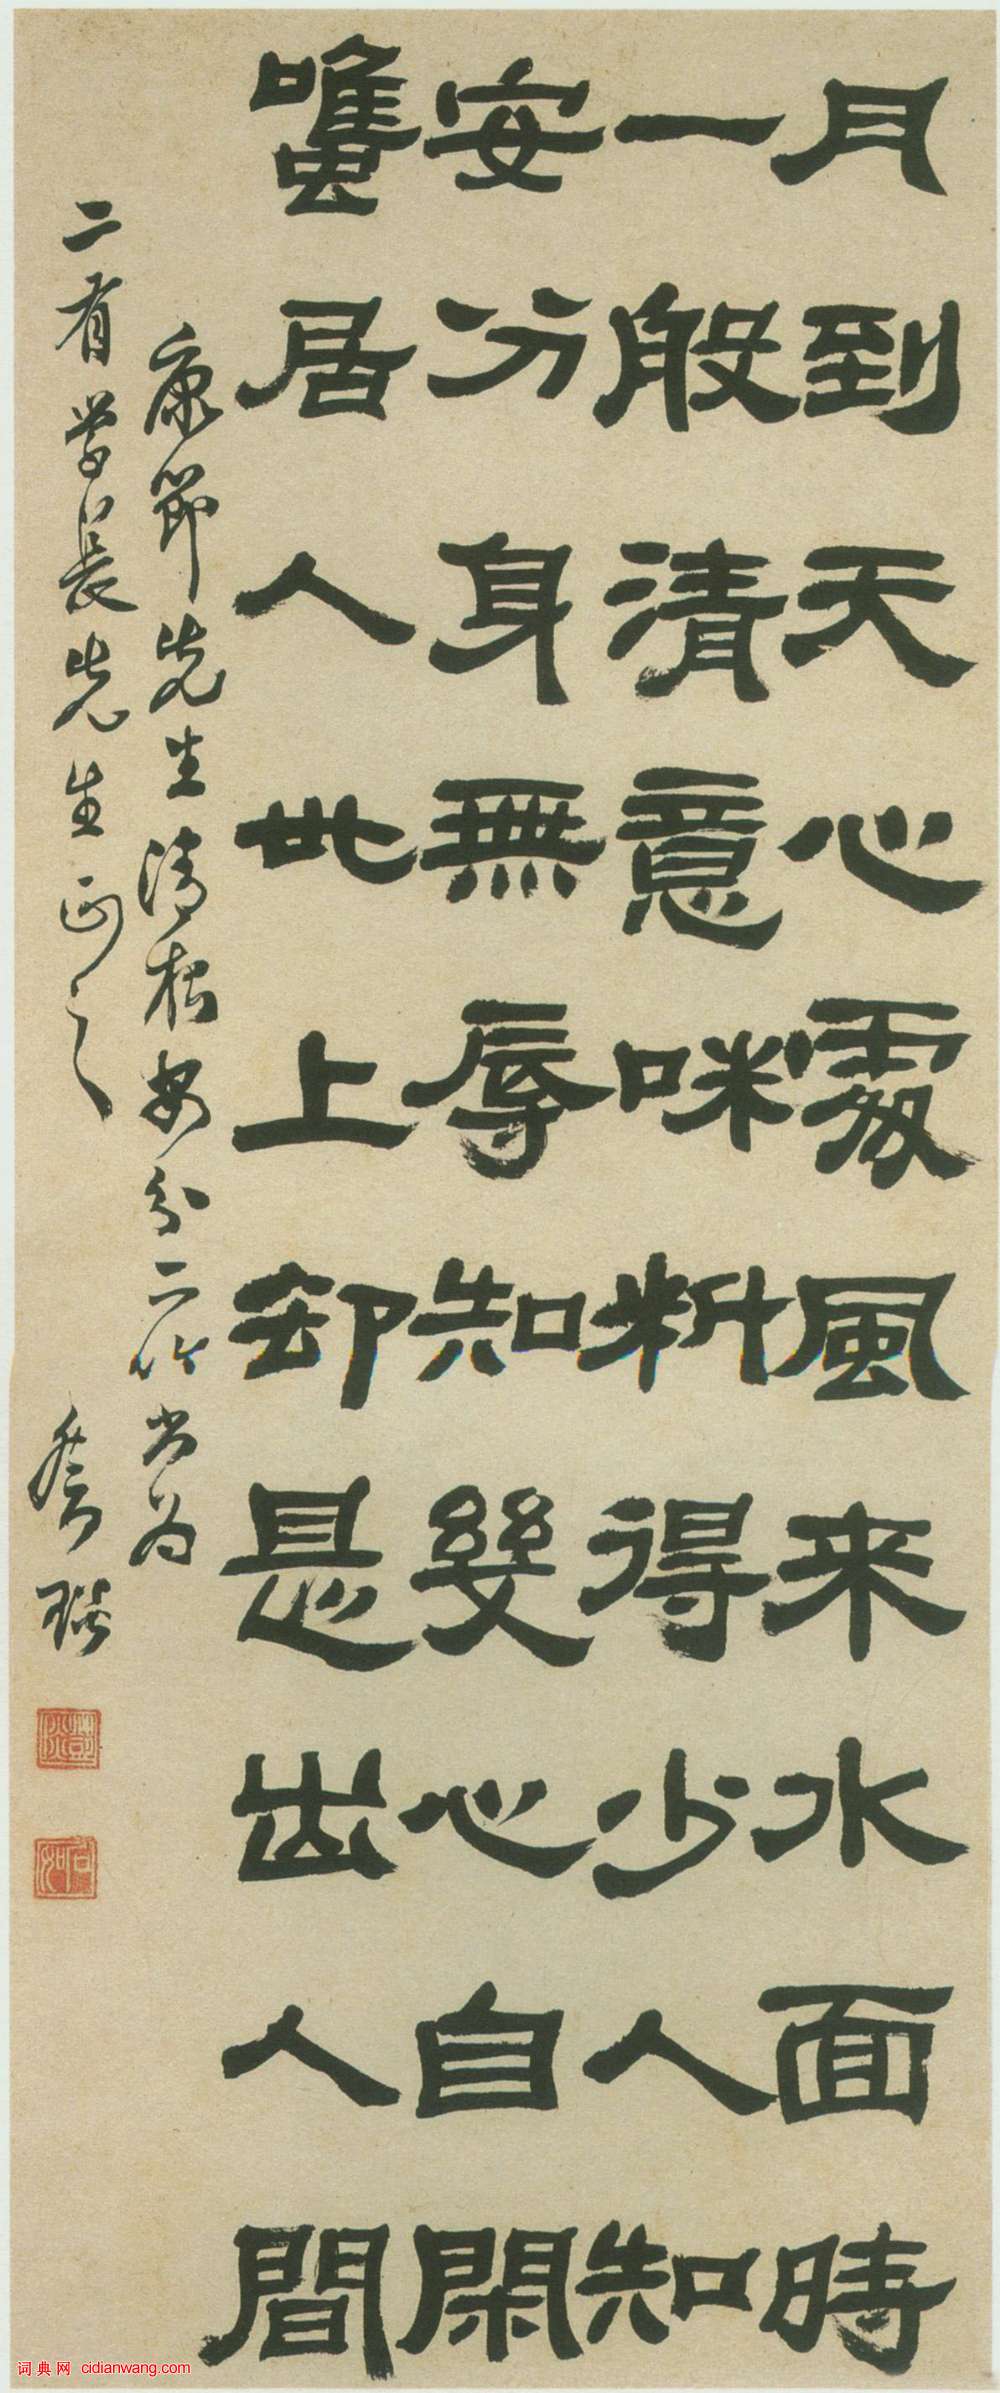 月到天心處風来水面時
一般清意味料得少人知
安分身無辱知幾心自閑
雖居人世上却是出人間
康節先生清夜安分二作書為
二有学長先生正之
詞典网 cidianwang.com